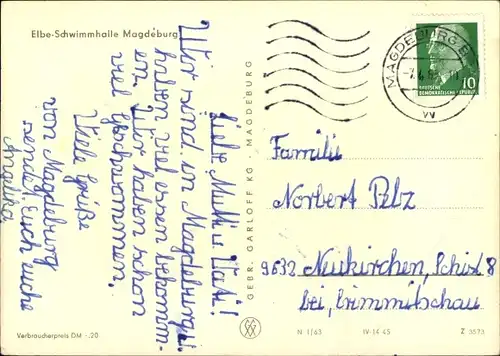 Elbe-Schwimmhalle Magdeburg
Liebe Mutti u. Vati!
Wir sind in Magdeburg.
haben viel essen bekomm-
en. Wir haben schon
viel geschwommen.
Viele Grüße
von Magdeburg
sendet Euch eiche
Angelika
GEBR. GARLOFF KG · MAGDEBURG
MAGDEBURG
DEUTSCHE
DEMOKRATISCHE REPUBLIK
10
Familie
Norbert Pelz
9632 Neukirchen, Schist 8
bei, Crimmitschau
Verbraucherpreis DM -,20
N 1/63
IV-14-45
Z 3573